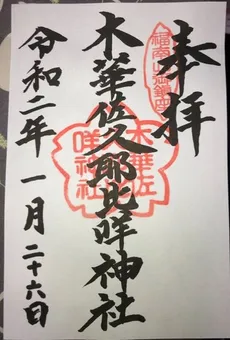 奉拝
木華佐久耶比咩神社
令和二年一月二十六日
福南山御鎮座
木華佐
久耶比
咩神社